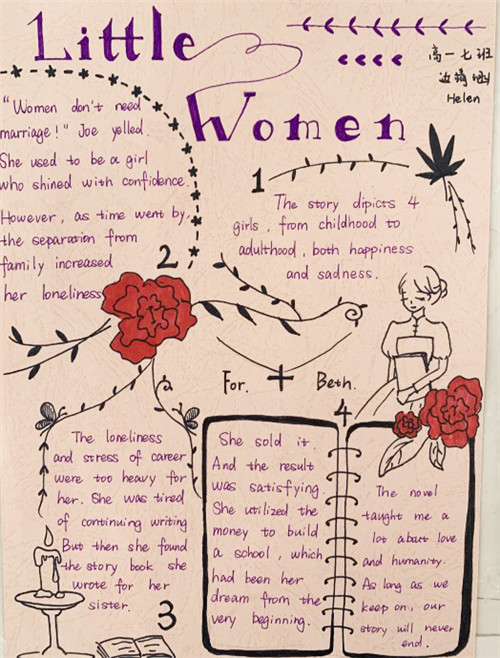 Little
Women
高一七班
Helen
1
The story dipicts 4
girls, from childhood to
adulthood, both happiness
and sadness.
2
"Women don't need
marriage!" Joe yelled.
She used to be a girl
who shined with confidence.
However, as time went by,
the separation from
family increased
her loneliness
3
The loneliness
and stress of career
were too heavy for
her. She was tired
of continuing writing
But then she found
the story book she
wrote for her
sister.
For. + Beth.
4
She sold it
And the result
was satisfying.
She utilized the
money to build
a school, which
had been her
dream from the
very beginning.
The novel
taught me a
lot about love
and humanity.
As long as we
keep on, our
story will never
end.